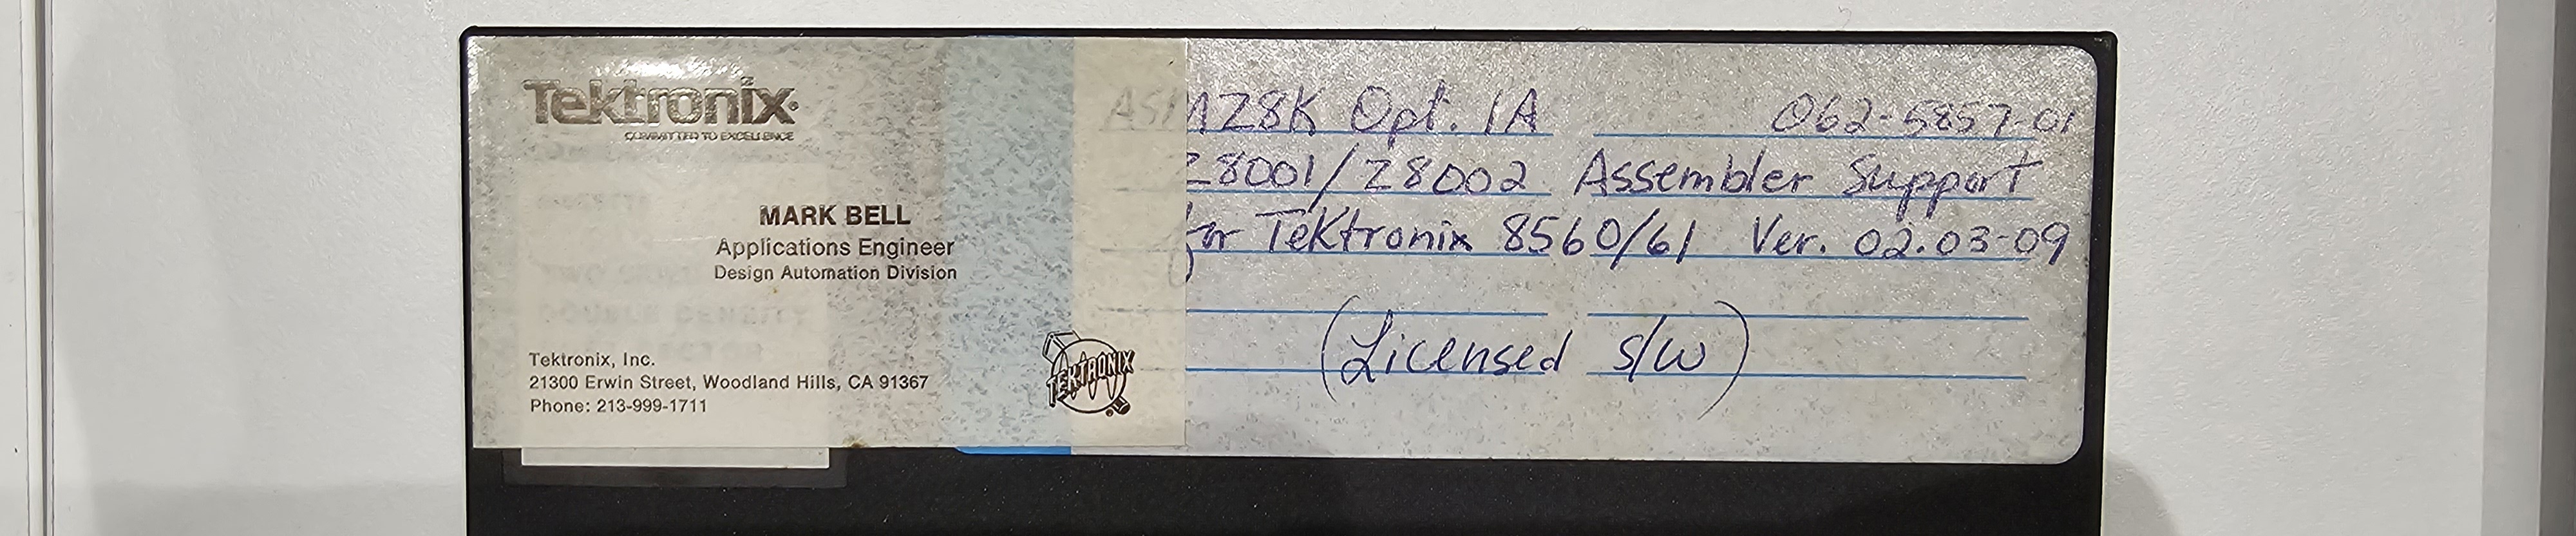 Tektronix
COMMITTED TO EXCELLENCE
MARK BELL
Applications Engineer
Design Automation Division
Tektronix, Inc.
21300 Erwin Street, Woodland Hills, CA 91367
Phone: 213-999-1711
TEKTRONIX
ASMZ8K Opt. 1A 062-5857-01
Z8001/Z8002 Assembler Support
for Tektronix 8560/61 Ver. 02.03-09
(Licensed s/w)
DOUBLE DENSITY